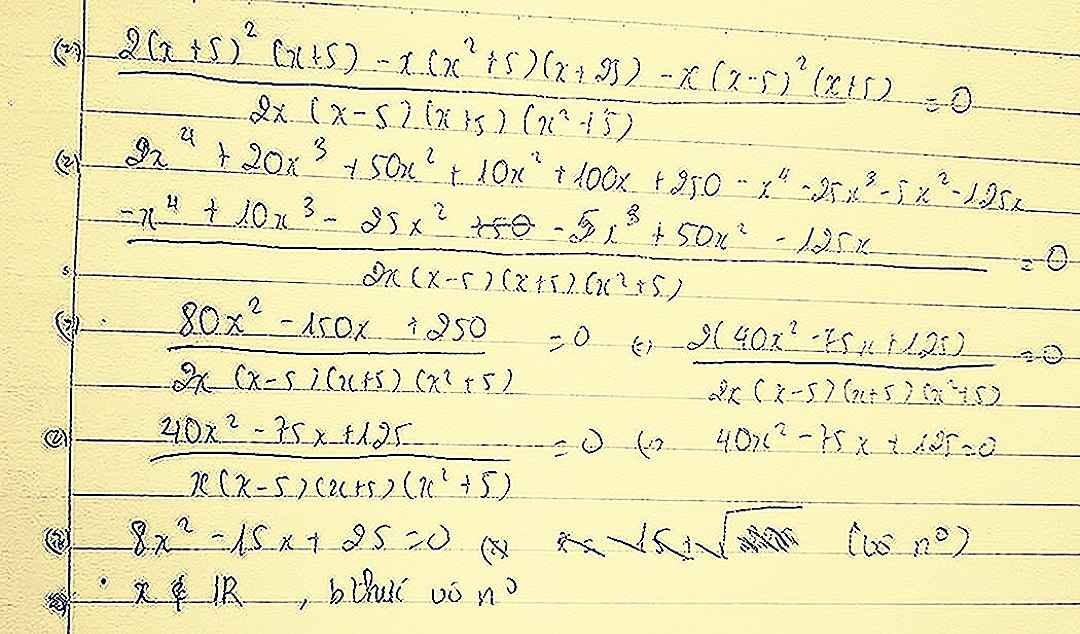 (=) 2(x+5)² (x+5) - x(x²+5)(x+25) - x(x-5)²(x+5) = 0
2x (x-5)(x+5)(x²+5)
(=) 2x⁴ + 20x³ + 50x² + 10x² + 100x + 250 - x⁴ - 25x³ - 5x² - 125x
-x⁴ + 10x³ - 25x² - 5x³ + 50x² - 125x = 0
2x(x-5)(x+5)(x²+5)
(=) 80x² - 150x + 250 = 0 (=) 2(40x² - 75x + 125) = 0
2x (x-5)(x+5)(x²+5) 2x(x-5)(x+5)(x²+5)
(=) 40x² - 75x + 125 = 0 (=) 40x² - 75x + 125 = 0
x(x-5)(x+5)(x²+5)
(=) 8x² - 15x + 25 = 0 (=) (vô n⁰)
x ∉ ℝ, bthức vô n⁰